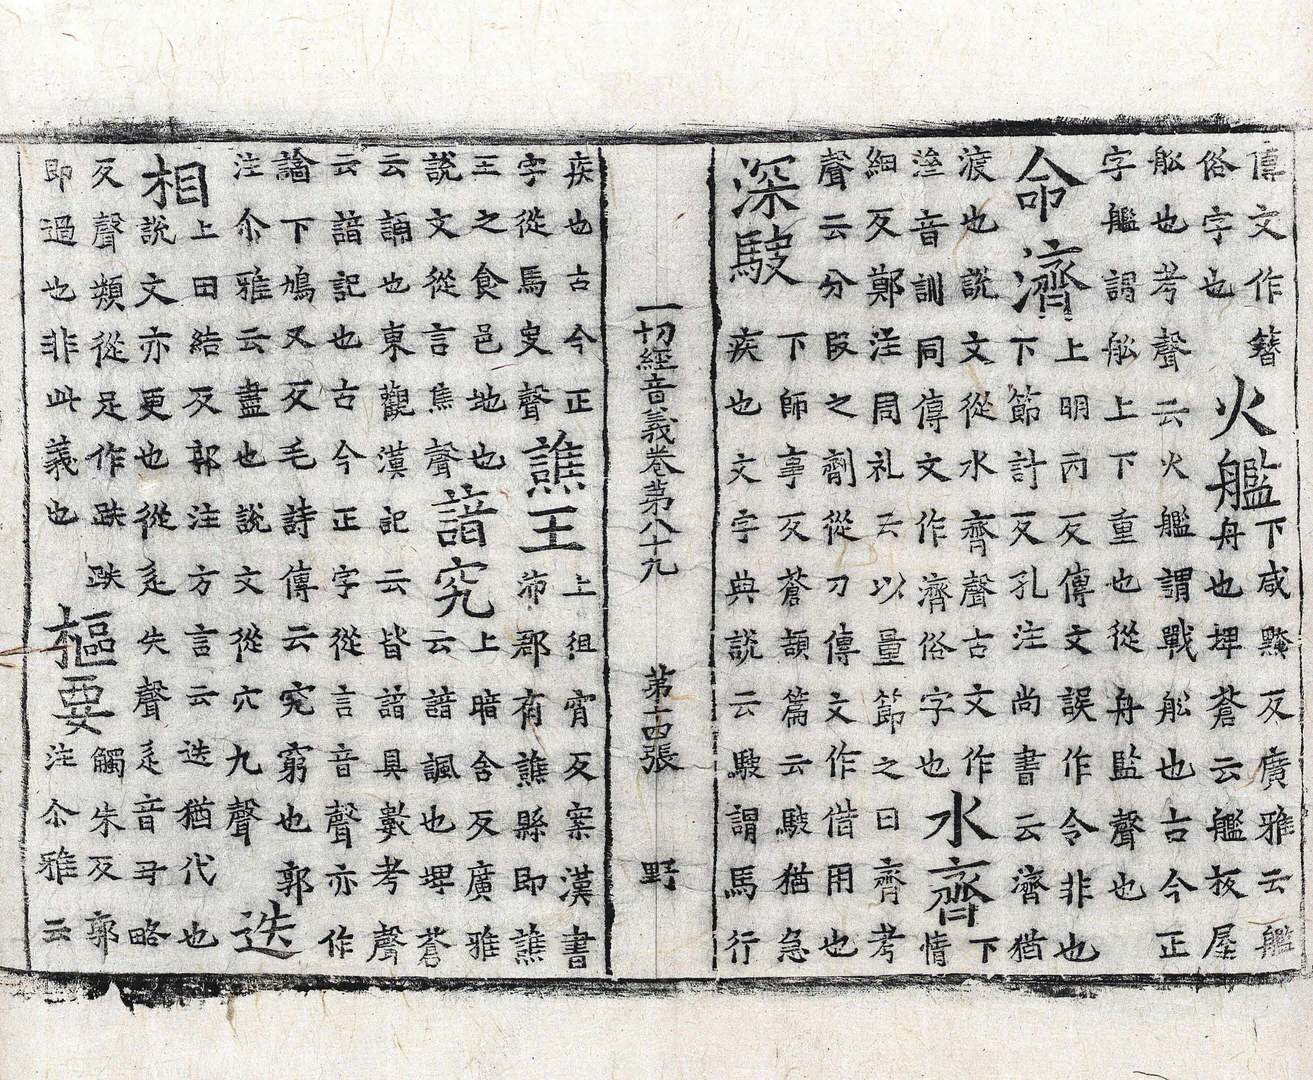 傳文作簪
俗字也
火艦
下咸黤反廣雅云艦
舟也埤蒼云艦板屋
舩也考聲云火艦謂戰舩也古今正
字艦謂舩上下重也從舟監聲也
命濟
上明丙反傳文誤作令非也
下節計反孔注尚書云濟猶
渡也說文從水齊聲古文作
音訓同傳文作濟俗字也
水齊
下
情
細反鄭注周礼云以量節之曰齊考
聲云分段之劑從刀傳文作偕用也
深駛
下師事反蒼頡篇云駛猶急
疾也文字典說云駛謂馬行
一切經音義卷第八十九 第十四張 野
疾也古今正
字從馬叓聲
譙王
上徂宵反案漢書
沛郡有譙縣即譙
王之食邑地也
說文從言焦聲
諳究
上暗含反廣雅
云諳諷也埤蒼
云誦也東觀漢記云皆諳具數考聲
云諳記也古今正字從言音聲亦作
下鳩又反毛詩傳云究窮也郭
注尒雅云盡也說文從穴九聲
迭
相
上田結反郭注方言云迭猶代也
說文亦更也從辵失聲辵音丑略
反聲類從足作跌跌
即過也非此義也
樞要
觸朱反郭
注尒雅云